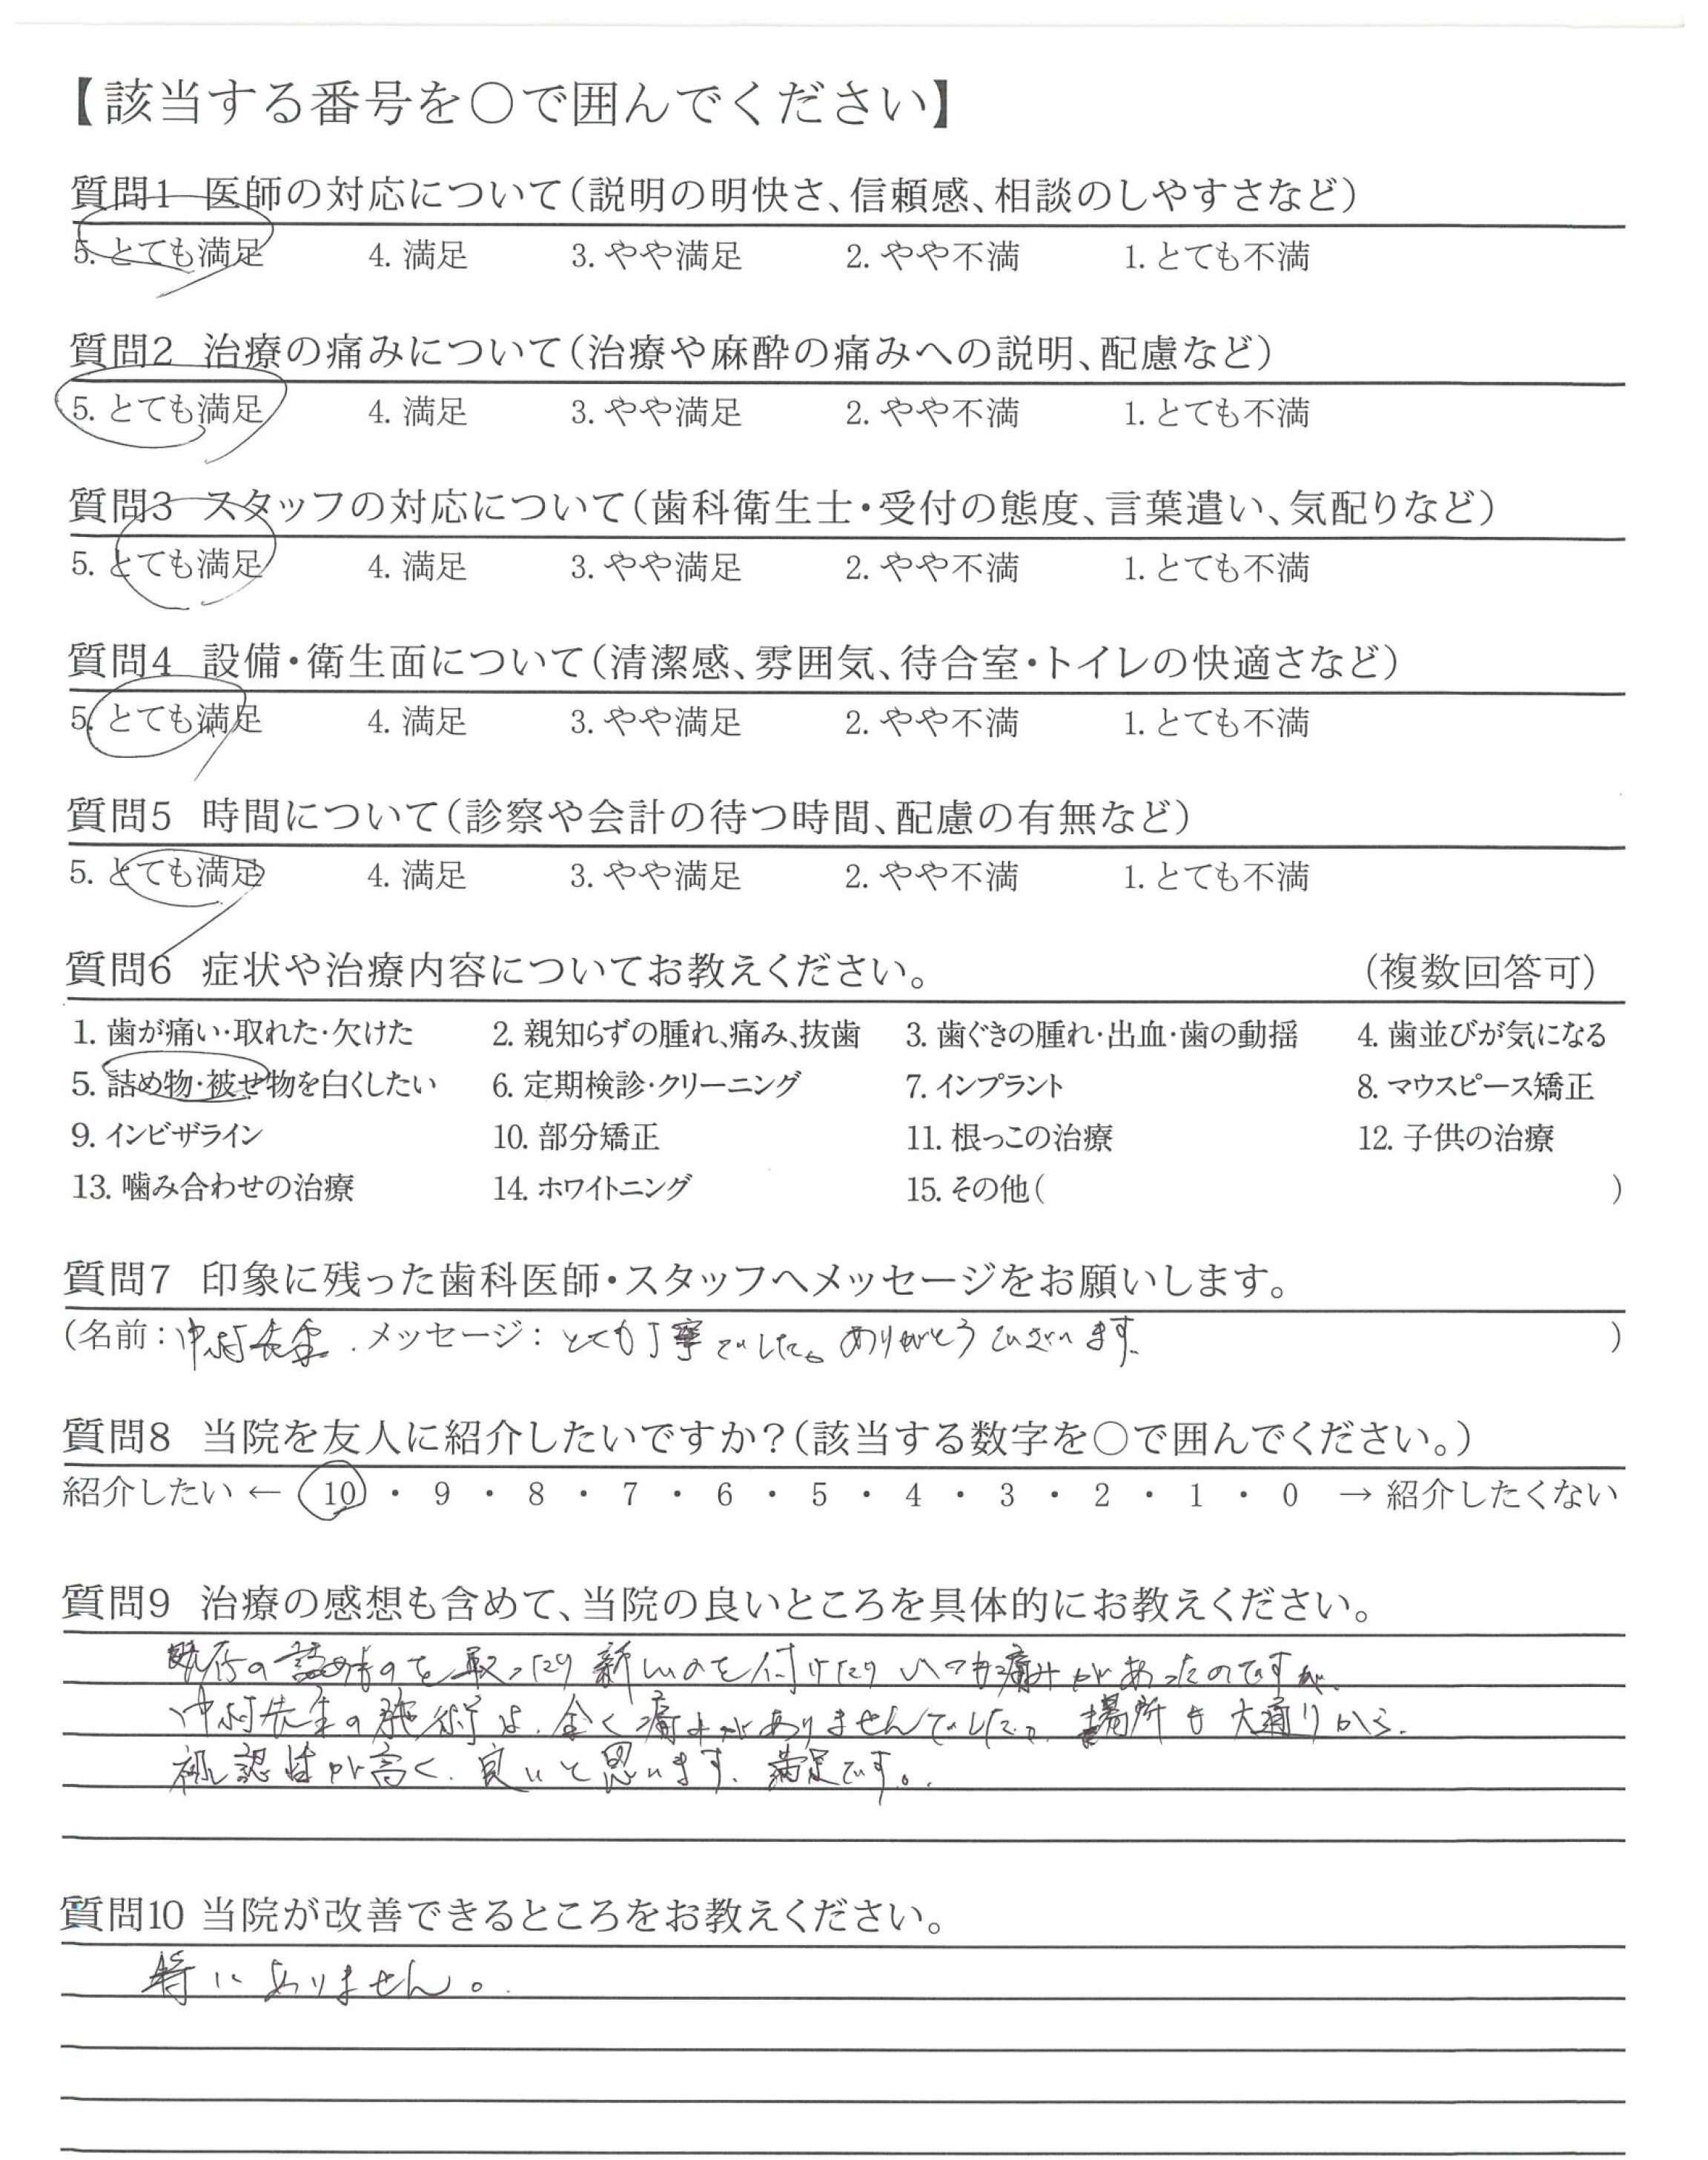 【該当する番号を〇で囲んでください】
質問1 医師の対応について(説明の明快さ、信頼感、相談のしやすさなど)
5. とても満足 4. 満足 3. やや満足 2. やや不満 1. とても不満
質問2 治療の痛みについて(治療や麻酔の痛みへの説明、配慮など)
5. とても満足 4. 満足 3. やや満足 2. やや不満 1. とても不満
質問3 スタッフの対応について(歯科衛生士・受付の態度、言葉遣い、気配りなど)
5. とても満足 4. 満足 3. やや満足 2. やや不満 1. とても不満
質問4 設備・衛生面について(清潔感、雰囲気、待合室・トイレの快適さなど)
5. とても満足 4. 満足 3. やや満足 2. やや不満 1. とても不満
質問5 時間について(診察や会計の待つ時間、配慮の有無など)
5. とても満足 4. 満足 3. やや満足 2. やや不満 1. とても不満
質問6 症状や治療内容についてお教えください。 (複数回答可)
1. 歯が痛い・取れた・欠けた 2. 親知らずの腫れ、痛み、抜歯 3. 歯ぐきの腫れ・出血・歯の動揺 4. 歯並びが気になる
5. 詰め物・被せ物を白くしたい 6. 定期検診・クリーニング 7. インプラント 8. マウスピース矯正
9. インビザライン 10. 部分矯正 11. 根っこの治療 12. 子供の治療
13. 噛み合わせの治療 14. ホワイトニング 15. その他( )
質問7 印象に残った歯科医師・スタッフへメッセージをお願いします。
(名前:中村先生. メッセージ:とても丁寧でした。ありがとうございます. )
質問8 当院を友人に紹介したいですか?(該当する数字を〇で囲んでください。)
紹介したい ← 10 ・ 9 ・ 8 ・ 7 ・ 6 ・ 5 ・ 4 ・ 3 ・ 2 ・ 1 ・ 0 → 紹介したくない
質問9 治療の感想も含めて、当院の良いところを具体的にお教えください。
既存の詰めものを取ったり新しいのを付けたりいつも痛みがあったのですが、
中村先生の施術は、全く痛みがありませんでした。場所も大通りから、
視認性が高く、良いと思います、満足です。
質問10 当院が改善できるところをお教えください。
特にありません。